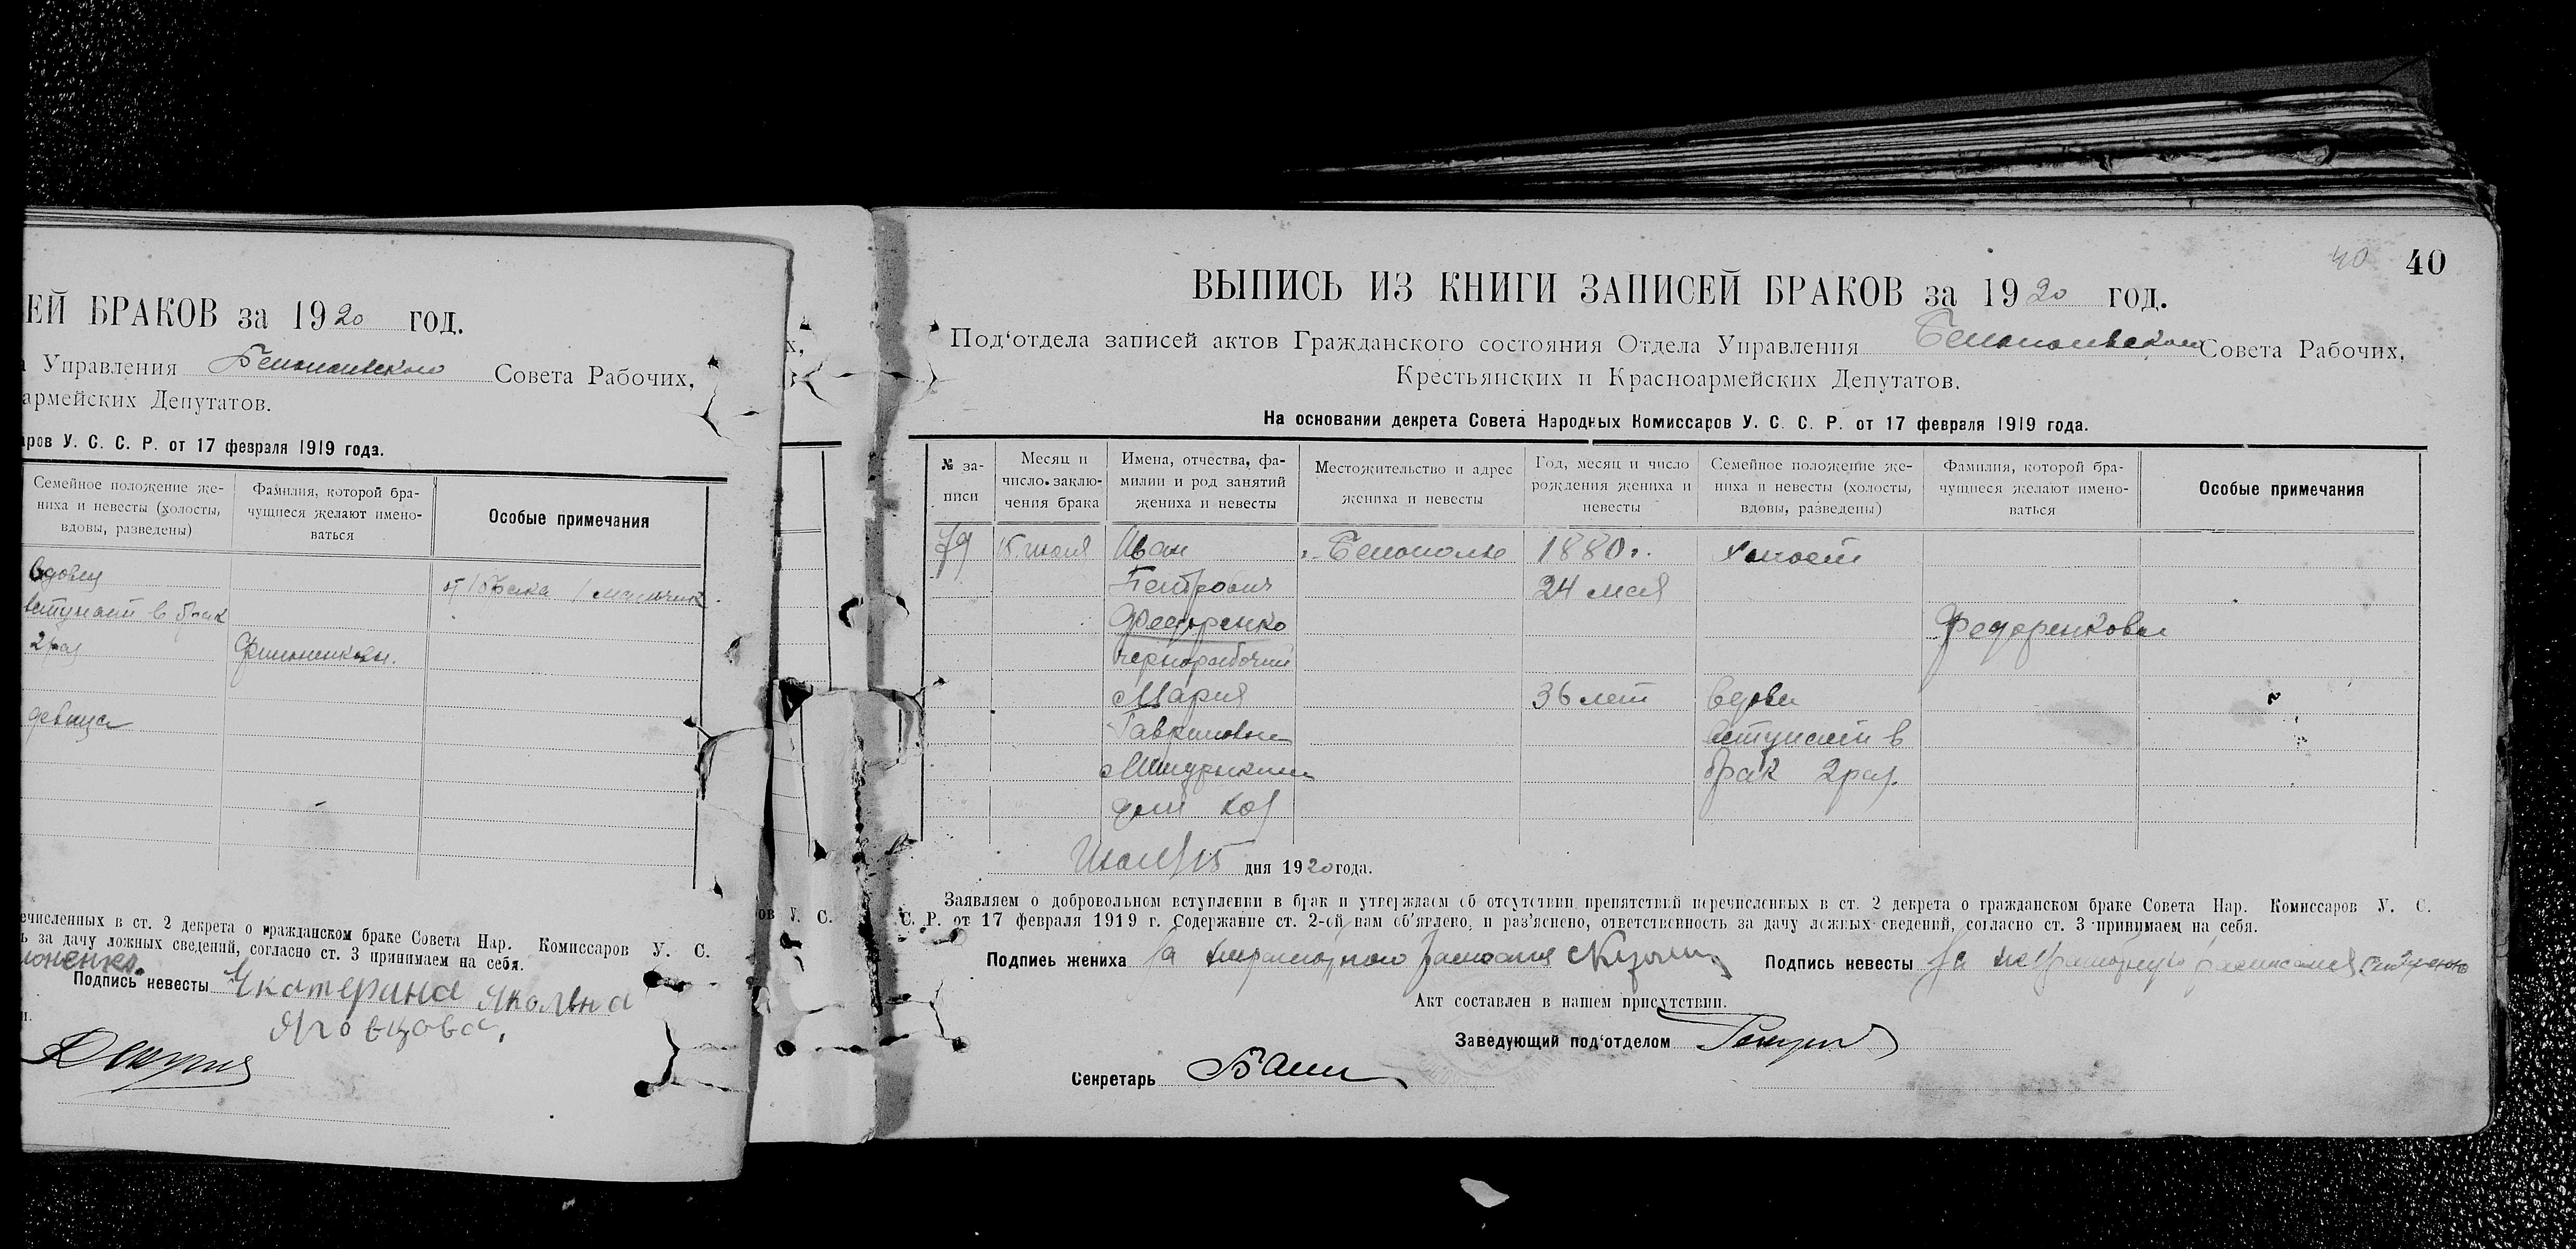 ЕЙ БРАКОВ за 1920 год.
Управления Белопольского Совета Рабочих,
армейских Депутатов.
аров У. С. С. Р. от 17 февраля 1919 года.
Семейное положение же-
ниха и невесты (холосты,
вдовы, разведены)
Фамилия, которой бра-
чущиеся желают имено-
ваться
Особые примечания
вдовец
вступает в брак
2 раз
девица
ечисленных в ст. 2 декрета о гражданском браке Совета Нар. Комиссаров У. С.
ь за дачу ложных сведений, согласно ст. 3 принимаем на себя.
Подпись невесты Екатерина Яковлевна
40
40
ВЫПИСЬ ИЗ КНИГИ ЗАПИСЕЙ БРАКОВ за 1920 год.
Под‘отдела записей актов Гражданского состояния Отдела Управления Белопольского Совета Рабочих,
Крестьянских и Красноармейских Депутатов.
На основании декрета Совета Народных Комиссаров У. С. С. Р. от 17 февраля 1919 года.
№ за-
писи
Месяц и
число заклю-
чения брака
Имена, отчества, фа-
милии и род занятий
жениха и невесты
Местожительство и адрес
жениха и невесты
Год, месяц и число
рождения жениха и
невесты
Семейное положение же-
ниха и невесты (холосты,
вдовы, разведены)
Фамилия, которой бра-
чущиеся желают имено-
ваться
Особые примечания
79 15 июля Иван Белополье 1880 г. холост
Петрович 24 мая
Федоренко Федоренковы
чернорабочий
Мария 36 лет вдова
Гавриловна вступает в
брак 2 раз.
дом хоз
Июля 15 дня 1920 года.
Заявляем о добровольном вступлении в брак и утверждаем об отсутствии препятствий перечисленных в ст. 2 декрета о гражданском браке Совета Нар. Комиссаров У. С.
С. Р. от 17 февраля 1919 г. Содержание ст. 2-ой нам об‘явлено, и раз‘яснено, ответственность за дачу ложных сведений, согласно ст. 3 принимаем на себя.
Подпись жениха За неграмотного расписался
Подпись невесты За неграмотную расписался
Акт составлен в нашем присутствии.
Заведующий под‘отделом
Секретарь